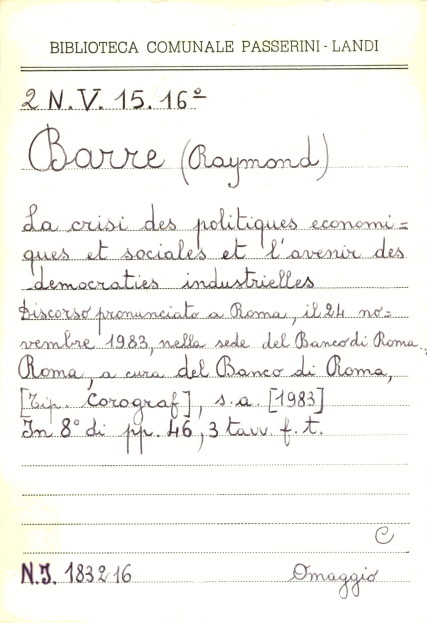 BIBLIOTECA COMUNALE PASSERINI - LANDI
2 N. V. 15. 16º
Barre (Raymond)
La crisi des politiques economi=
ques et sociales et l'avenir des
democraties industrielles
Discorso pronunciato a Roma, il 24 no=
vembre 1983, nella sede del Banco di Roma.,
Roma, a cura del Banco di Roma,
[Tip. Corograf], s.a. [1983]
In 8° di pp. 46, 3 tavv. f. t.
C
N.I. 183216 Omaggio